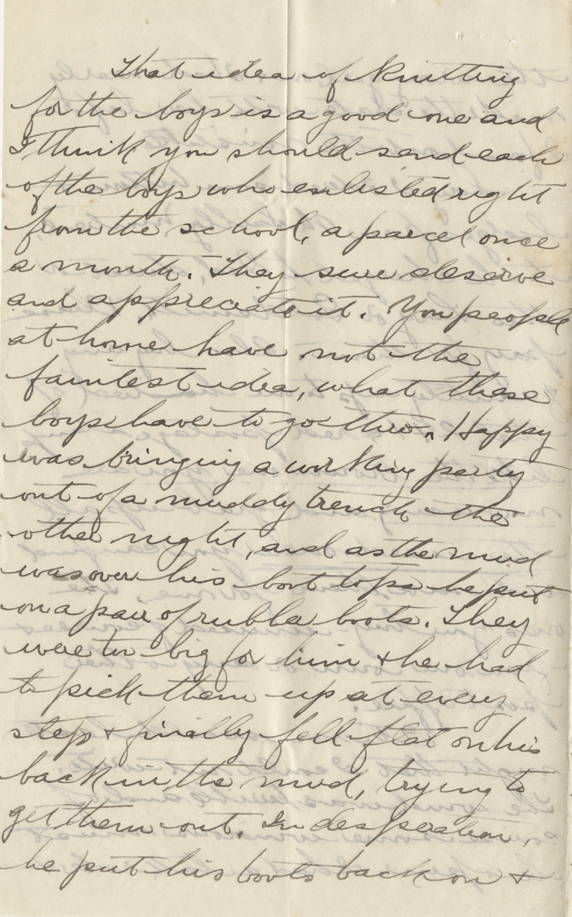 That idea of Knitting
for the boys is a good one and
I think you should send each
of the boys who enlisted right
from the school, a parcel once
a month. They sure deserve
and appreciate it. You people
at home have not the
faintest idea, what these
boys have to go thro. Happy
was bringing a working party
out of a muddy trench the
other night, and as the mud
was over his boot tops he put
on a pair of rubber boots. They
were too big for him & he had
to pick them up at every
step & finally fell flat on his
back in the mud, trying to
get them out. In desperation,
he put his boots back on &